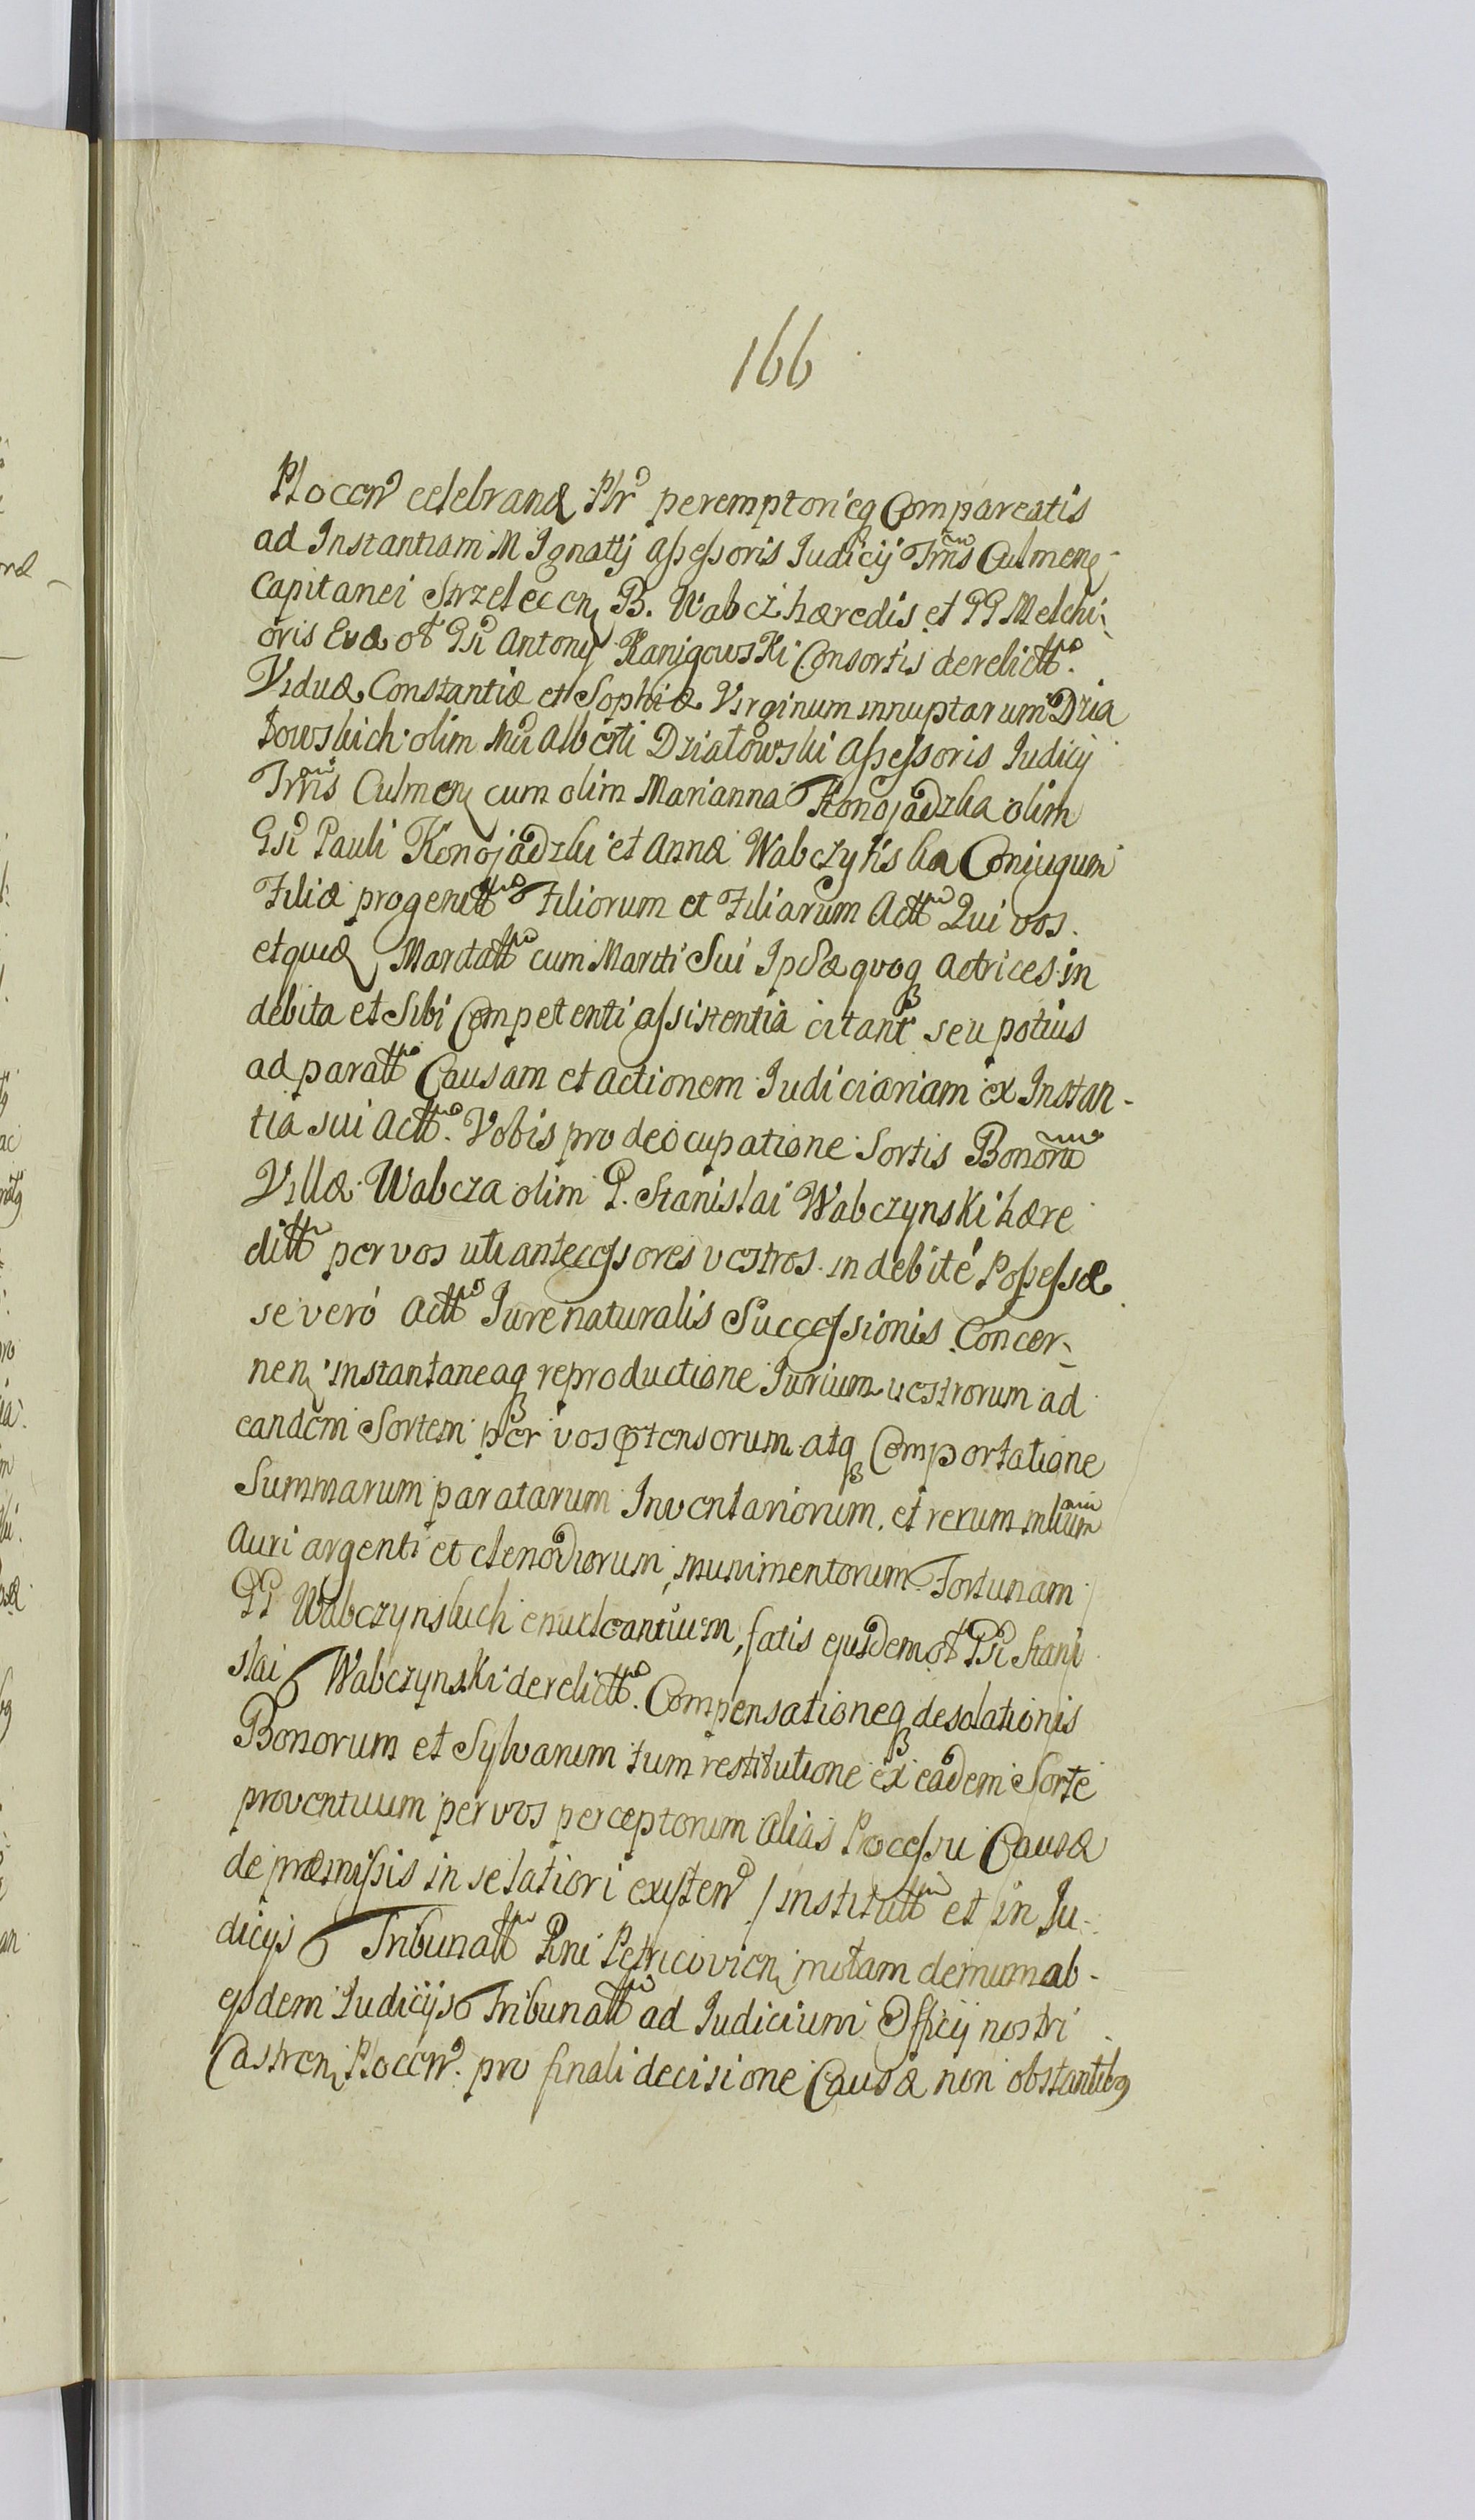 166
Płoccn celebrand Plr peremptorieq Compareatis
ad Instantiam M Ignatij assessoris Iudicij Trnis Culmen
Capitanei Strzeleccn B. Wabcz hæredis et GG Melchi-
oris Evæ ol GD Antonij Kanigowski Consortis derelictt
Viduæ, Constantiæ et Sophiæ Virginum innuptarum Dzia
łowskich olim Alberti Działowski assessoris Iudicij
Trnis Culmen cum olim Marianna Konojadzka olim
Pauli Konojadzki et Annæ Wabczyńska Coniugum
Filiæ progenitt Filiorum et Filiarum Actt Qui vos
etquæ Maritatt cum Mariti Sui Ipsæ quoq actrices in
debita et Sibi Competenti assistentia citant seu potius
ad paratt Causam et actionem Iudiciariam ex Instan-
tia sui Actt. Vobis pro deocupatione Sortis Bonorum
Villæ Wabcza olim G. Stanislai Wabczynski hære
ditt per vos uti antecessores vestros indebité Possessæ
se veró Actt Iure naturalis Successionis Concer-
nen instantaneaq reproductione Iurium vestrorum ad
eandem Sortem per vos ptensorum atq Comportatione
Summarum paratarum Inventariorum, et rerum mlium
Auri argenti et clenodiorum, munimentorum Fortunam
GG Wabczynskich enucleantium, fatis ejusdem ol GD Stani
slai Wabczynski derelictt. Compensationeq desolationis
Bonorum et Sylvarum tum restitutione ex eadem Sorte
proventuum per vos perceptorum alias Processu Causæ
de præmissis in se latiori existen / institutt et in Iu-
dicijs Tribunatt Rni Petricovien motam demum ab
ejsdem Iudicijs Tribunatt ad Iudicium Officij nostri
Castren Płoccn. pro finali decisione Causæ non obstantibq